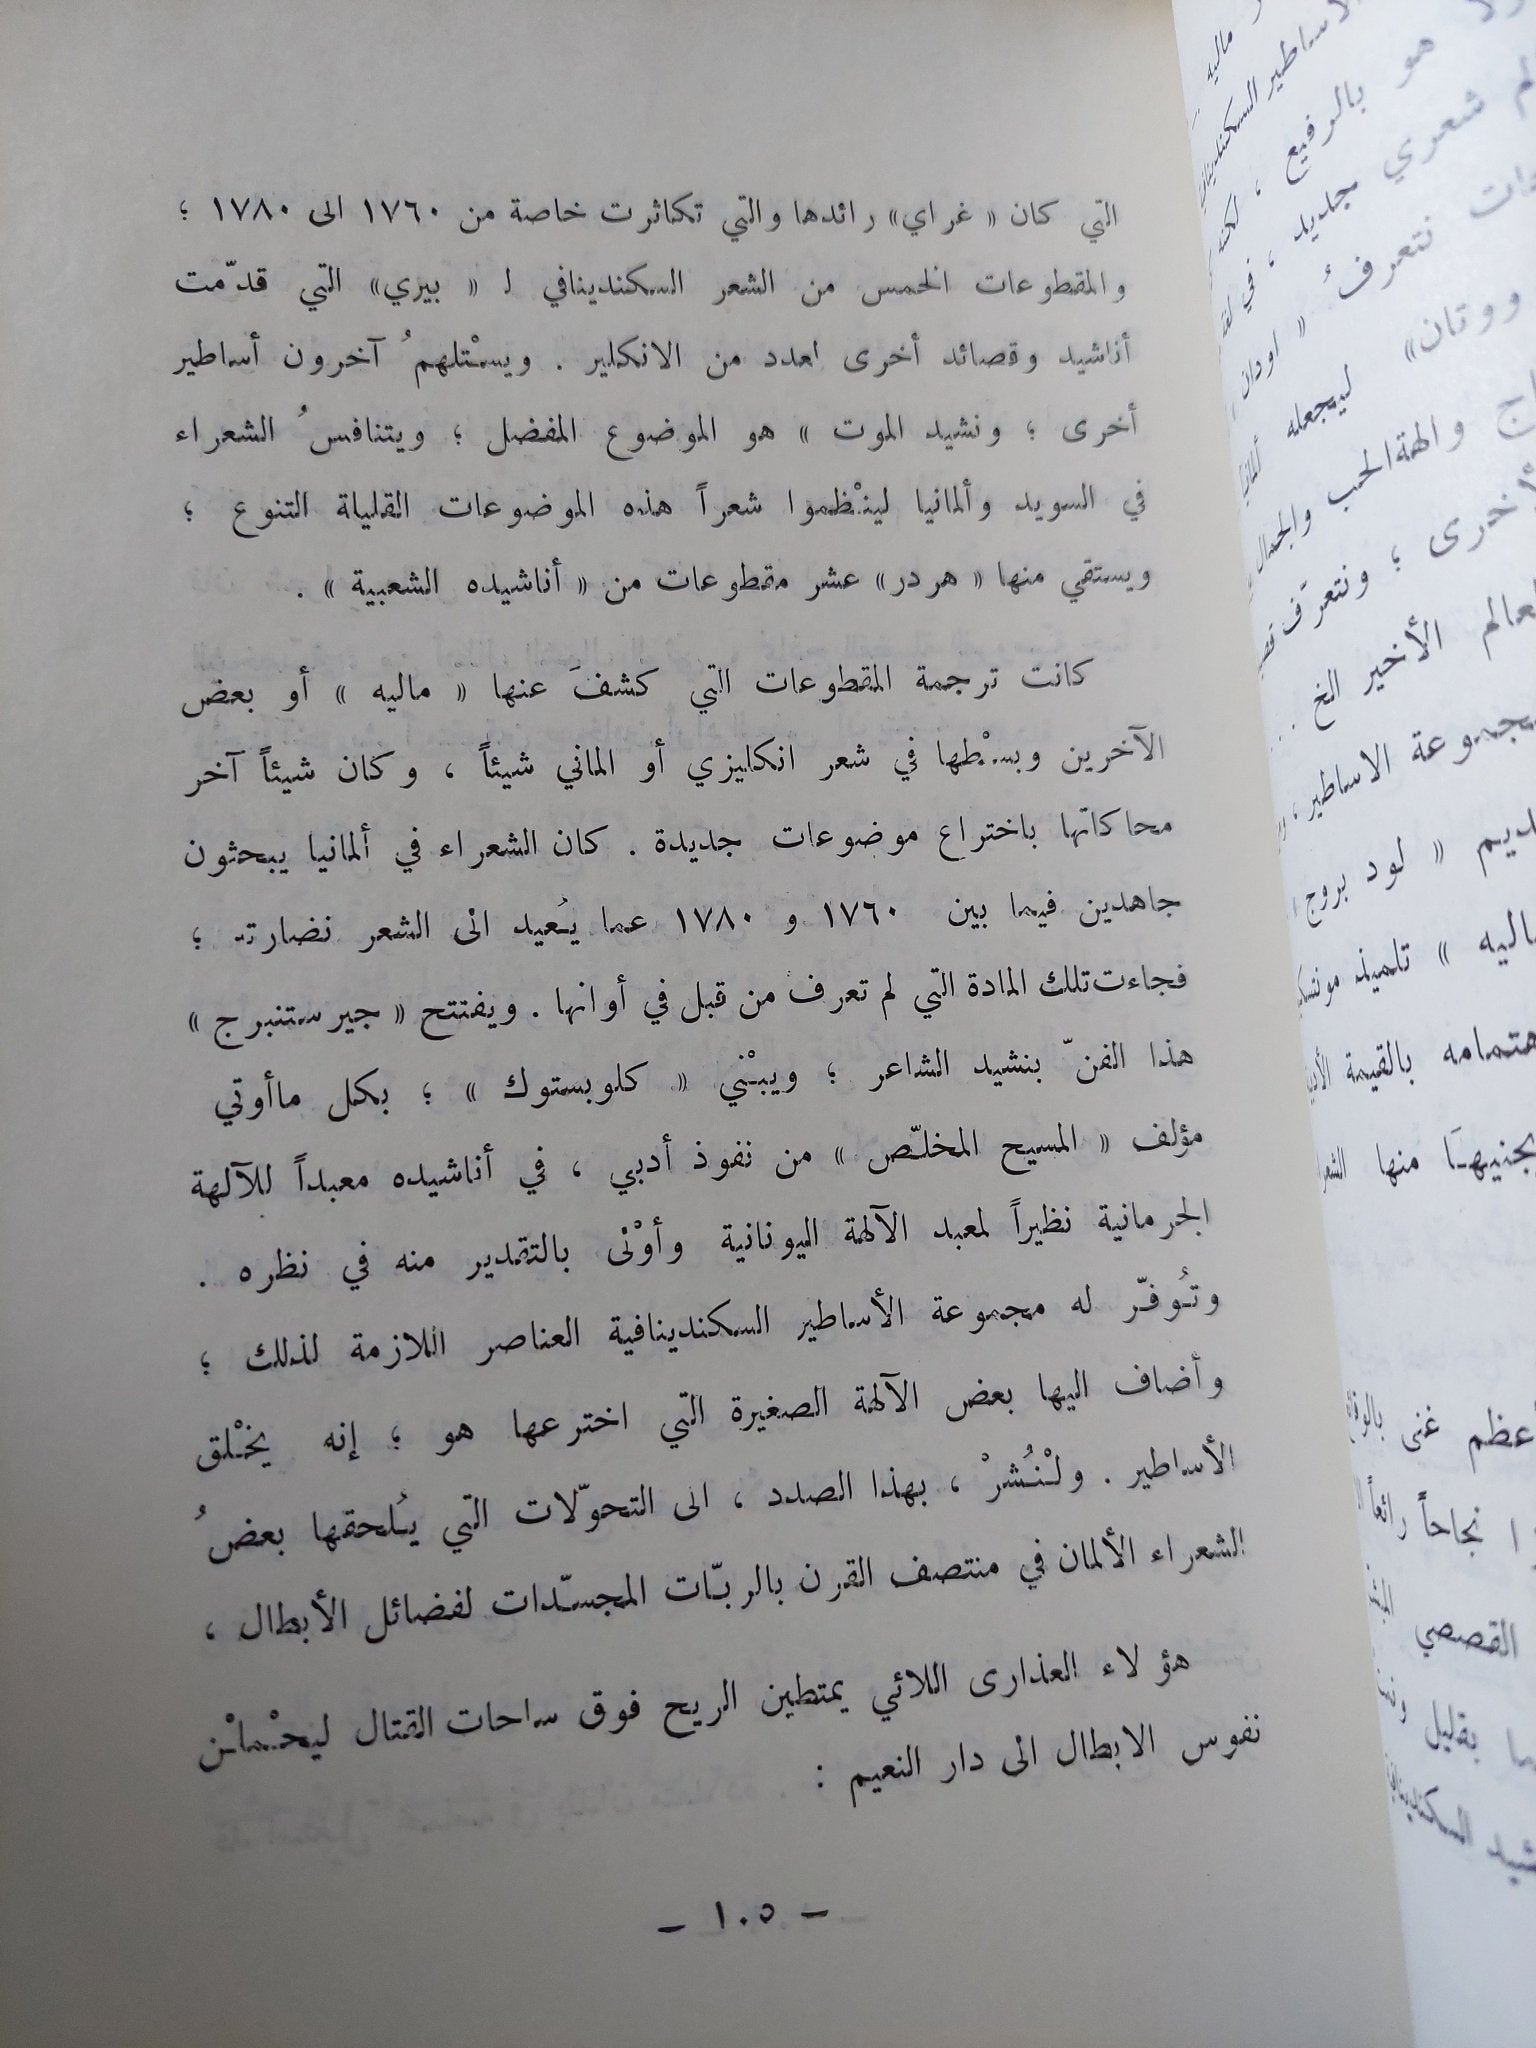 التي كان « غراي» رائدها والتي تكاثرت خاصة من ١٧٦٠ الى ١٧٨٠ ؛
والمقطوعات الخمس من الشعر السكندينافي لـ « بيرسي» التي قدّمت
أناشيد وقصائد أخرى لعدد من الانكليز . ويسْتلهمُ آخرون أساطير
أخرى ؛ ونشيد الموت » هو الموضوع المفضل ؛ ويتنافسُ الشعراء
في السويد وألمانيا لينْظموا شعراً هذه الموضوعات القليلة التنوع ؛
ويستقي منها « هردر» عشر مقطوعات من « أناشيده الشعبية » .
كانت ترجمة المقطوعات التي كشفَ عنها « ماليه » أو بعض
الآخرين وبسْطها في شعر انكليزي أو الماني شيئاً ، وكان شيئاً آخر
محاكاتها باختراع موضوعات جديدة . كان الشعراء في ألمانيا يبحثون
جاهدين فيما بين ١٧٦٠ و ١٧٨٠ عما يُعيد الى الشعر نضارته ؛
فجاءت تلك المادة التي لم تعرف من قبل في أوانها . ويفتتح « جيرستنبرج »
هذا الفنّ بنشيد الشاعر ؛ ويبْني « كلوبستوك » ؛ بكل ماأوتي
مؤلف « المسيح المخلّص » من نفوذ أدبي ، في أناشيده معبداً للآلهة
الجرمانية نظيراً لمعبد الآلهة اليونانية وأوْلى بالتقدير منه في نظره .
وتُوفّر له مجموعة الأساطير السكندينافية العناصر اللازمة لذلك ؛
وأضاف اليها بعض الآلهة الصغيرة التي اخترعها هو ؛ إنه يخْلق
الأساطير . ولْنُشرْ ، بهذا الصدد ، الى التحوّلات التي يُلحقها بعضُ
الشعراء الألمان في منتصف القرن بالربّات المجسّدات لفضائل الأبطال ،
هؤلاء العذارى اللائي يمتطين الريح فوق ساحات القتال ليحْملْن
نفوس الابطال الى دار النعيم :
– ١٠٥ –